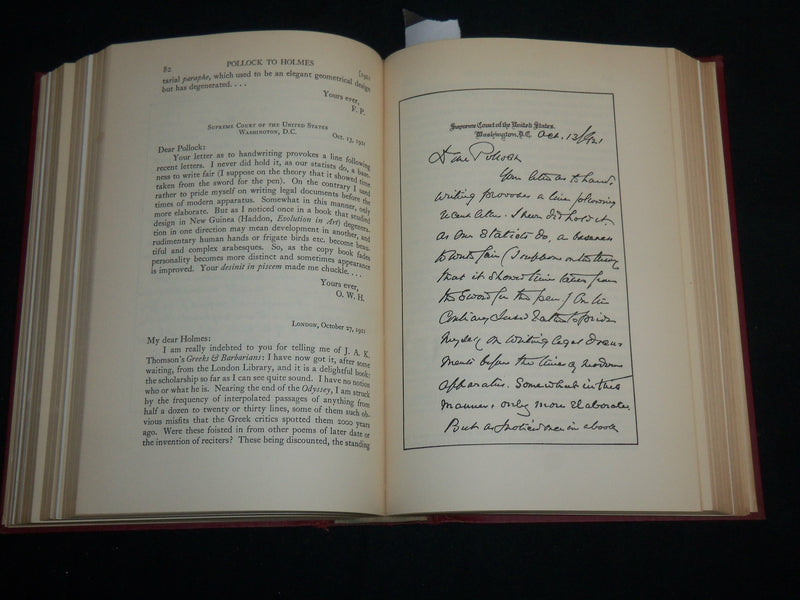 82 POLLOCK TO HOLMES [1921
tarial paraphe, which used to be an elegant geometrical design
but has degenerated. . . .
Yours ever,
F. P.
SUPREME COURT OF THE UNITED STATES
WASHINGTON, D.C.
Oct. 13, 1921
Dear Pollock:
Your letter as to handwriting provokes a line following
recent letters. I never did hold it, as our statists do, a base-
ness to write fair (I suppose on the theory that it showed time
taken from the sword for the pen). On the contrary I used
rather to pride myself on writing legal documents before the
times of modern apparatus. Somewhat in this manner, only
more elaborate. But as I noticed once in a book that studied
design in New Guinea (Haddon, Evolution in Art) degenera-
tion in one direction may mean development in another, and
rudimentary human hands or frigate birds etc. become beau-
tiful and complex arabesques. So, as the copy book fades
personality becomes more distinct and sometimes appearance
is improved. Your desinit in piscem made me chuckle. . . .
Yours ever,
O. W. H.
LONDON, October 27, 1921
My dear Holmes:
I am really indebted to you for telling me of J. A. K.
Thomson's Greeks & Barbarians: I have now got it, after some
waiting, from the London Library, and it is a delightful book:
the scholarship so far as I can see quite sound. I have no notion
who or what he is. Nearing the end of the Odyssey, I am struck
by the frequency of interpolated passages of anything from
half a dozen to twenty or thirty lines, some of them such ob-
vious misfits that the Greek critics spotted them 2000 years
ago. Were these foisted in from other poems of later date or
the invention of reciters? These being discounted, the standing
Supreme Court of the United States.
Washington, D.C. Oct. 13/1921
Dear Pollock
Your letter as to hand
writing provokes a line following
recent letters. I never did hold it,
as our statists do, a baseness
to write fair (I suppose on the theory
that it showed time taken from
the sword for the pen) On the
contrary I used rather to pride
myself on writing legal docu
ments before the times of modern
apparatus. Somewhat in this
manner, only more elaborate.
But as I noticed once in a book